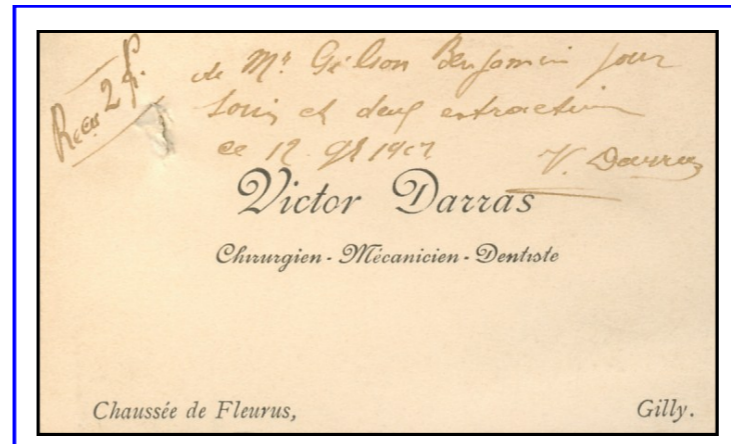 Reçu 2 f.
de Mr. Gilson Benjamin pour
soins et deux extraction
ce 12 1907
V. Darras
Victor Darras
Chirurgien - Mécanicien - Dentiste
Chaussée de Fleurus,
Gilly.